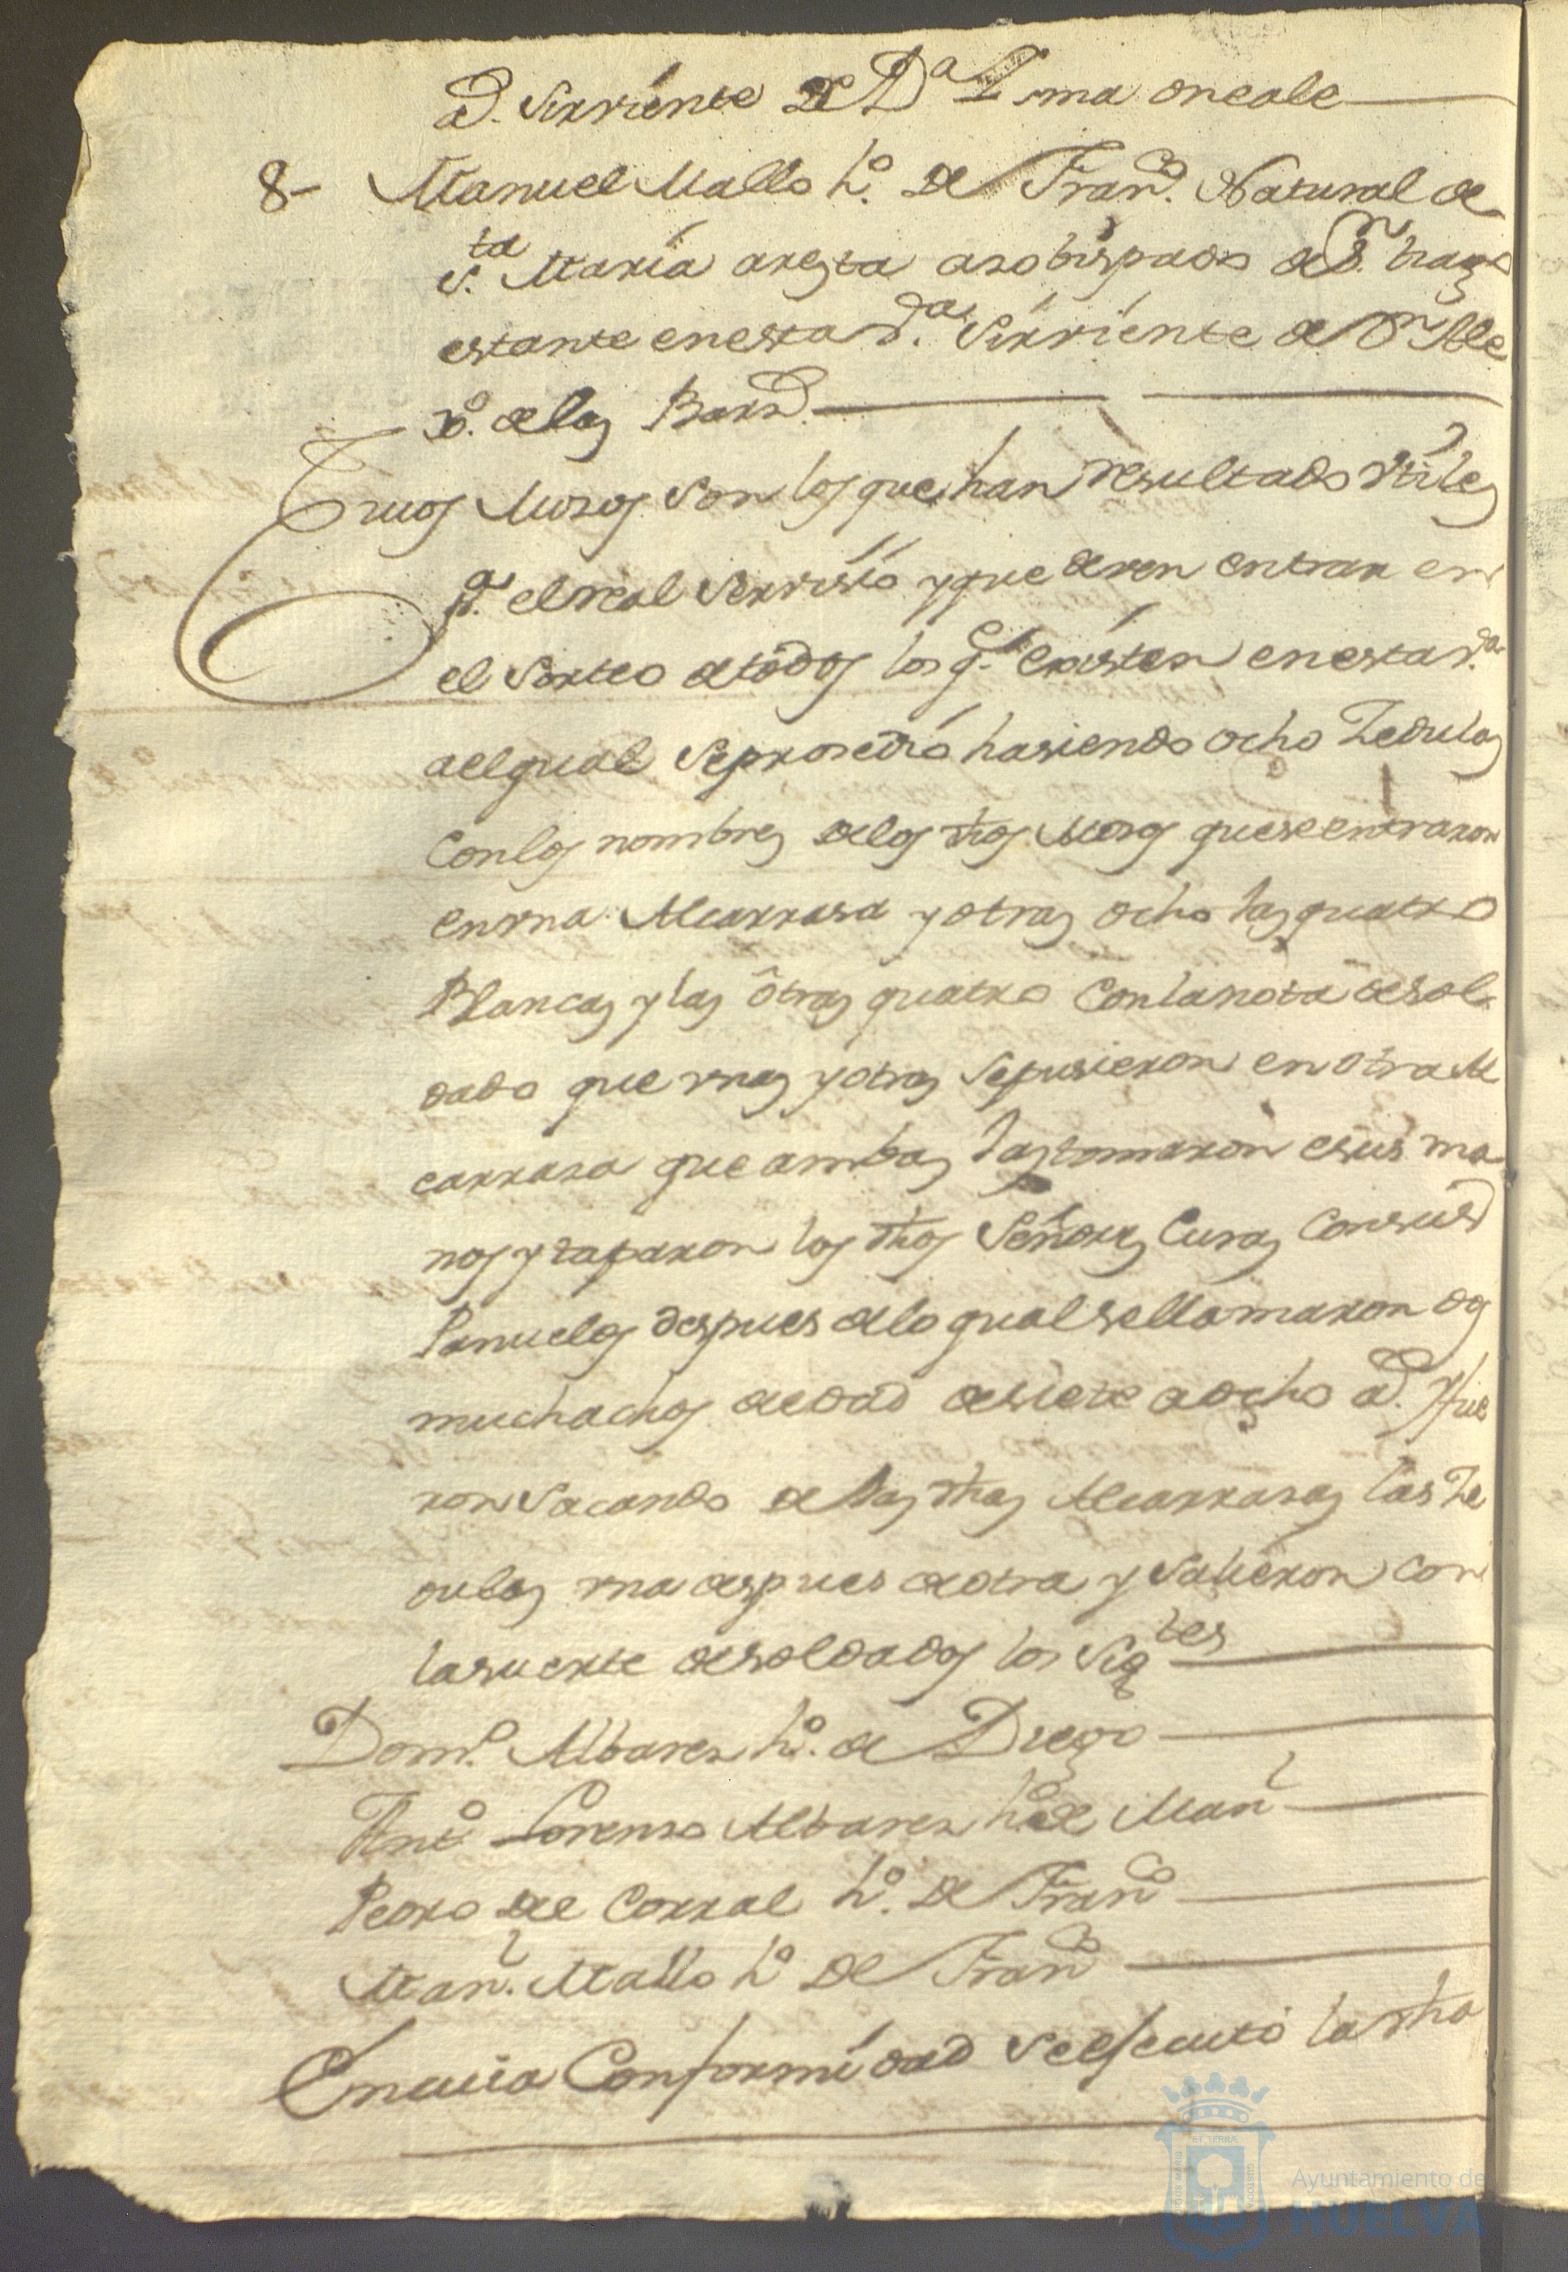 a.s Sirviente de D.a Ynna oneale
8- Manuel Mallo h.o de Fran.co Natural de
S.ta Maria aresta arobispado de S.n tiago
estante en esta v.a Sirviente de D.n Ale
x.o de los Barr.s
Cuios Mosos son los que han resultado vtiles
p.a el real Serrvisio y que deven entrar en
el Sorteo de todos los q.e existen en esta v.a
a el qual Se prosedio hasiendo ocho Zedulas
Con los nombres de los dhos Mosos que se entraron
en vna Alcarrasa y otras ocho las quatro
Blancas y las otras quatro Con la nota de sol-
dado que vnas y otras Se pusieron en otra Al
carrasa que ambas las tomaron en sus ma
nos y taparon los dhos Señores Curas Con sus
Panuelos despues de lo qual se llamaron dos
muchachos de edad de siete a ocho a.s y fue
ron Sacando de las dhas Alcarrasas las Ze
dulas vna despues de otra y Salieron Con
la suerte de soldados los Sig.tes
Dom.o Albares h.o de Diego
Ant.o Lorenso Albares h.o de Man.l
Pedro del Corral h.o de Fran.co
Man.l Mallo h.o de Fran.co
En cuia Conformidad Se efecuto la dha
Ayuntamiento de
HUELVA